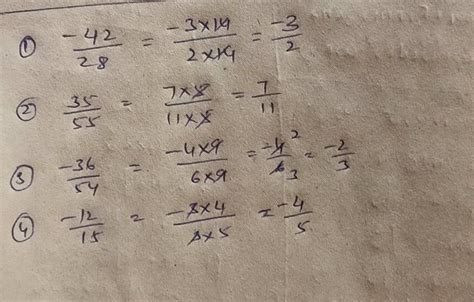 ① -42/28 = -3×14/2×14 = -3/2
② 35/55 = 7×5/11×5 = 7/11
③ -36/54 = -4×9/6×9 = -4/6 2/3 = -2/3
④ -12/15 = -3×4/3×5 = -4/5